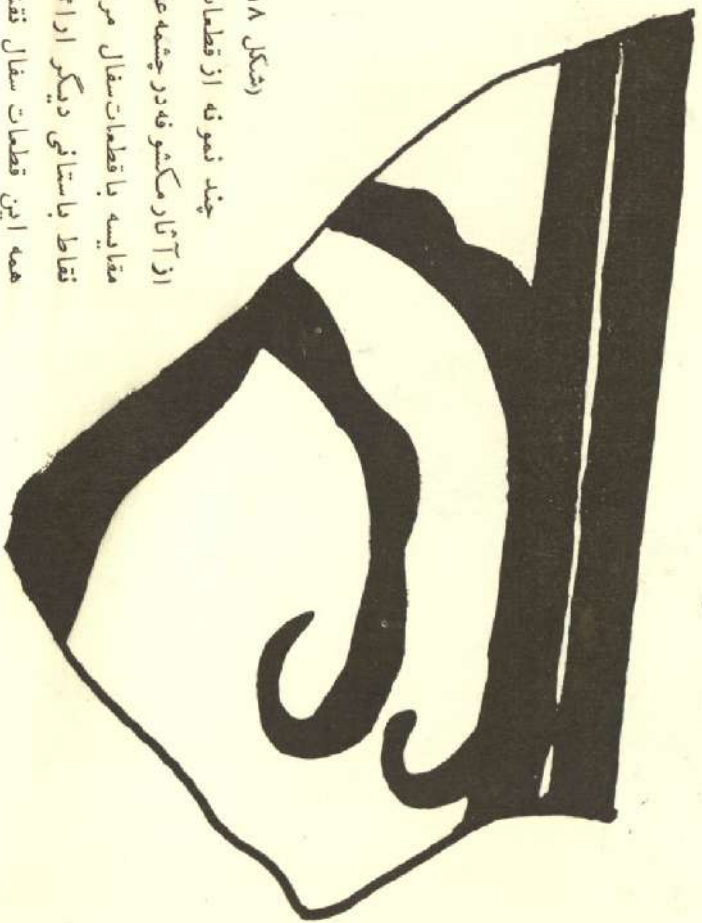 (شکل ۱۸
چند نمونه از
از آثار مکشوفه در چشمه
مقایسه با قطعات سفال
نقاط باستانی دیگر
همه این قطعات سفال